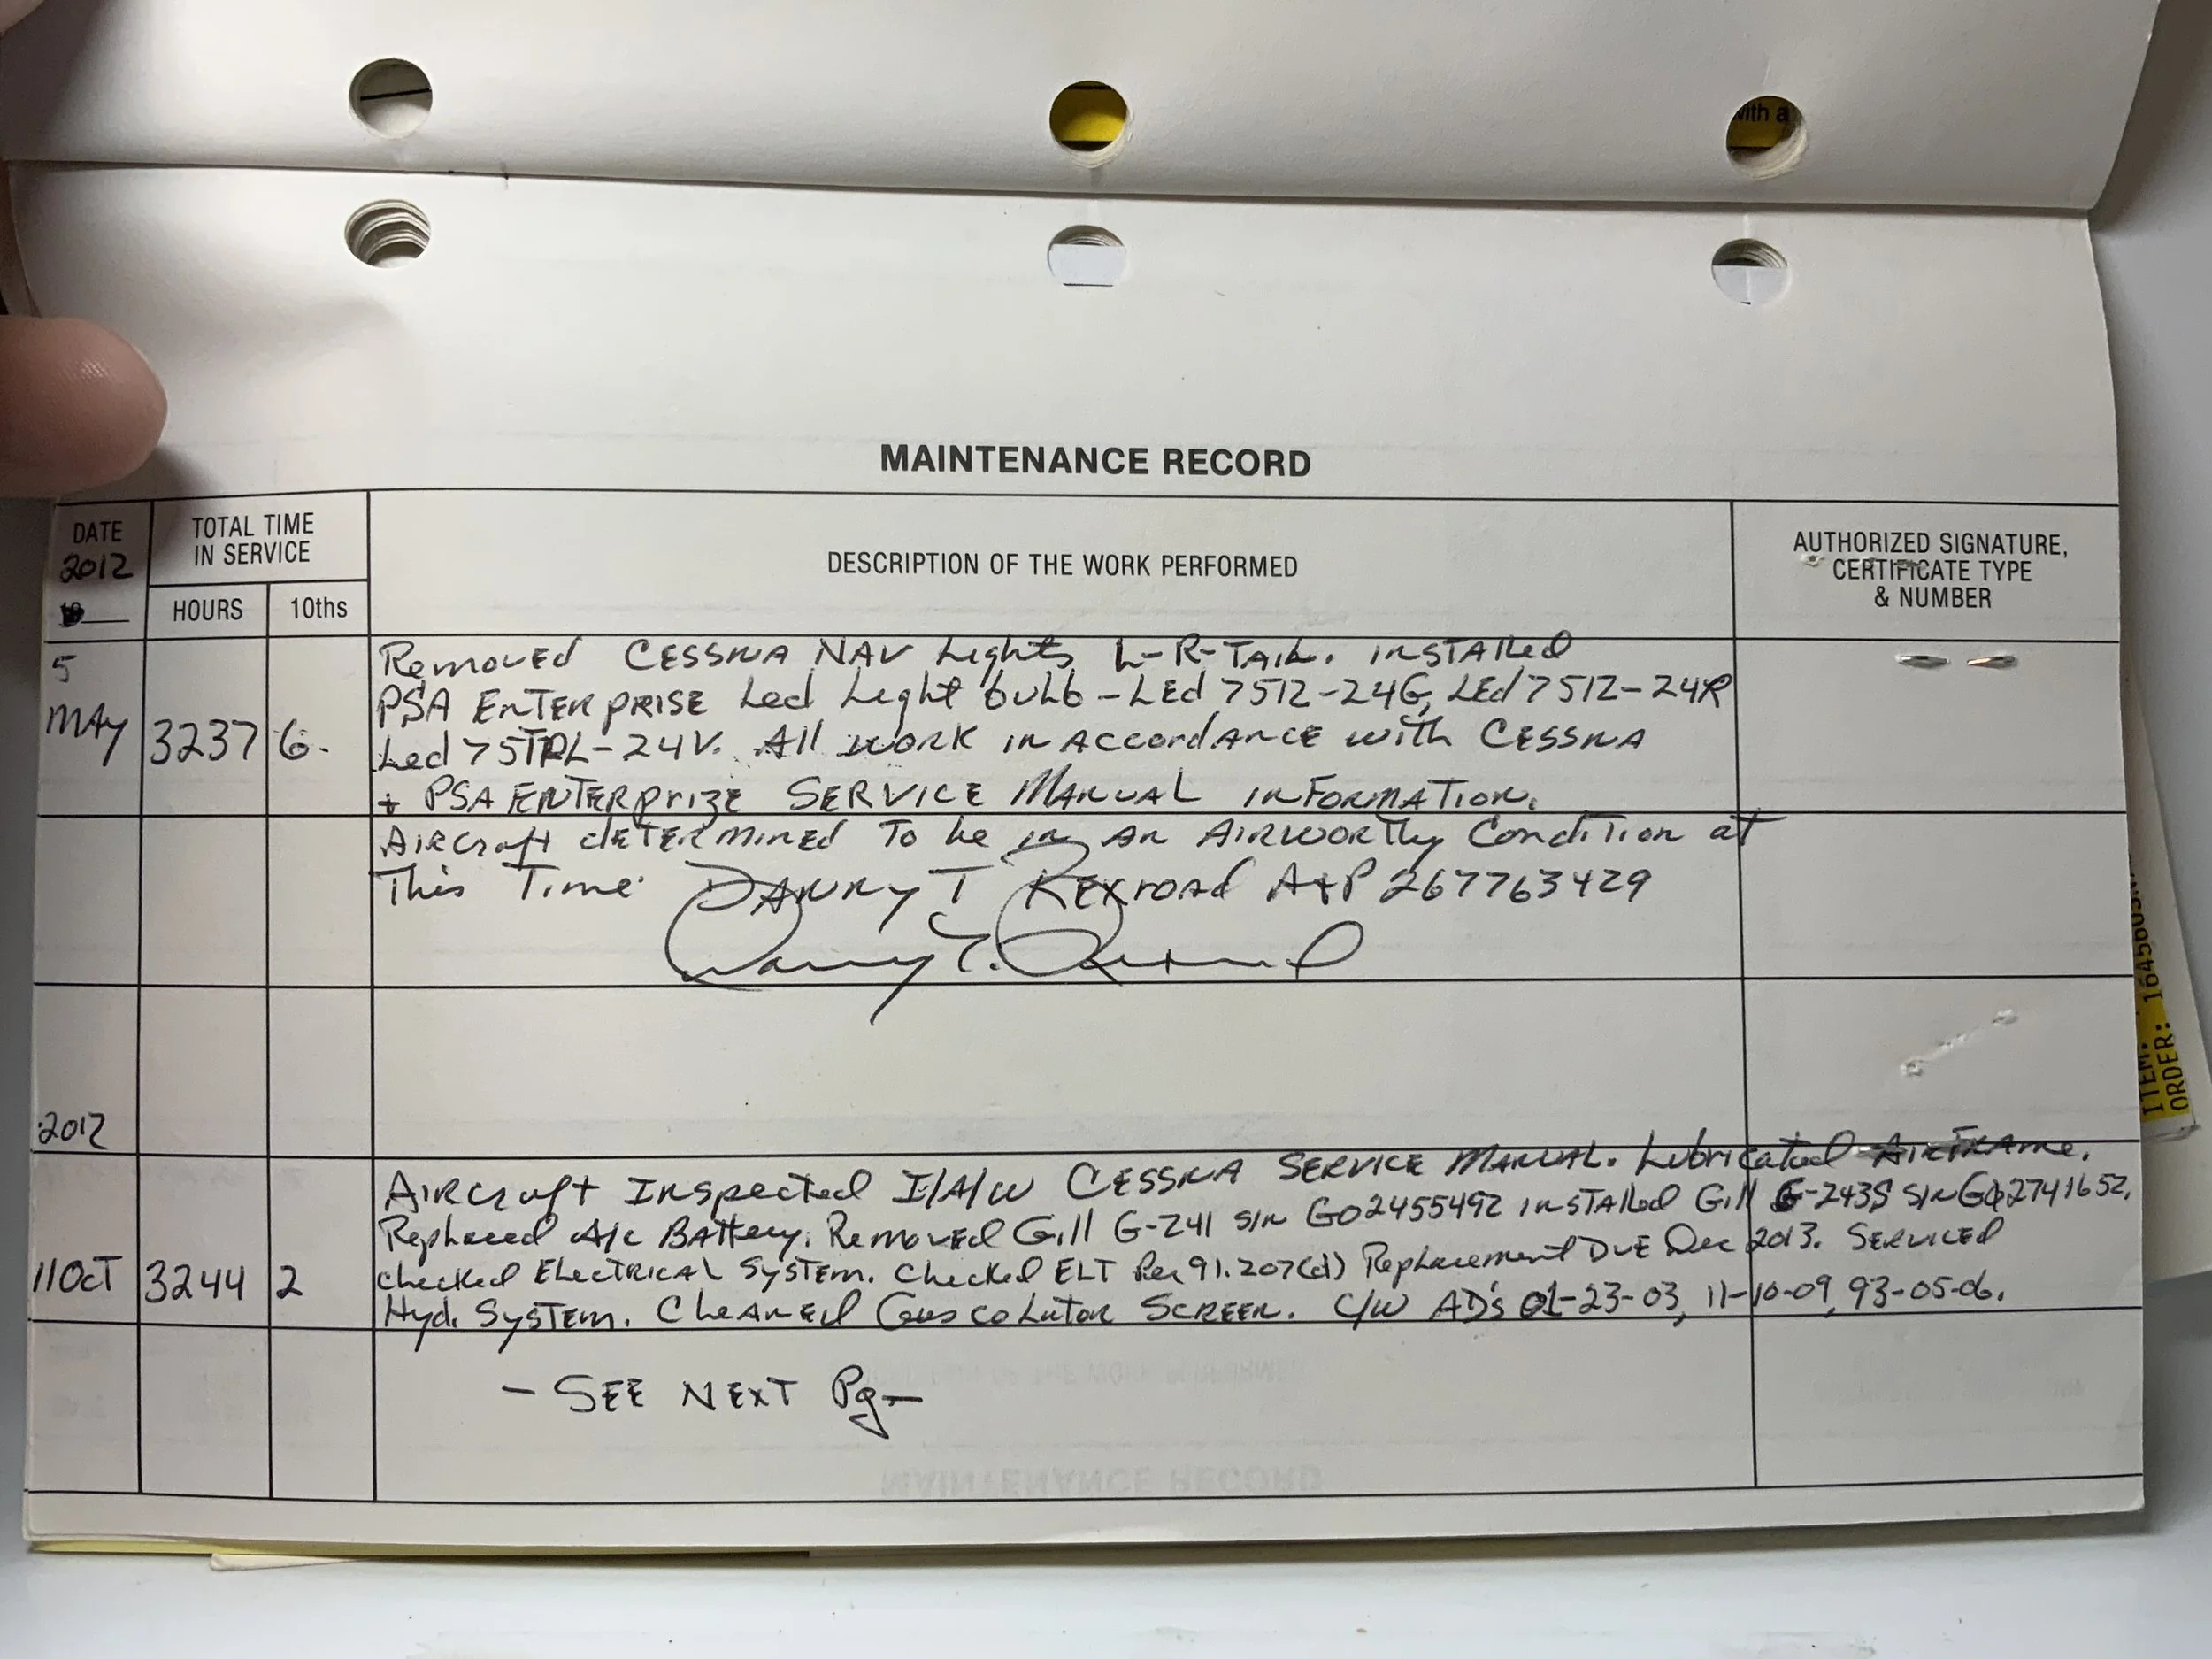 with a
MAINTENANCE RECORD
DATE
2012
TOTAL TIME
IN SERVICE
HOURS
10ths
DESCRIPTION OF THE WORK PERFORMED
AUTHORIZED SIGNATURE,
CERTIFICATE TYPE
& NUMBER
5
MAY
3237
6.
Removed CESSNA NAV Lights L-R-TAIL. installed
PSA ENTERPRISE Led Light bulb - LEd 7512-24G, LEd 7512-24R
Led 75TRL-24V. All work in accordance with CESSNA
+ PSA ENTERprize SERVICE MANUAL inFORMATION.
Aircraft dETERMINED To be in An AIRWORThy Condition at
This Time. DANNY T Rexroad A+P 267763429
Danny T. Rexroad
2012
11 Oct
3244
2
Aircraft Inspected I/A/W CESSNA SERVICE MANUAL. Lubricated AIRFRAme.
Replaced A/c BATTery. Removed Gill G-241 S/N G02455492 inSTAlled Gill G-243S S/N G02741652.
checked ELECTRICAL SYSTEM. Checked ELT Per 91.207(d) Replacement DUE Dec 2013. SERVICEd
Hyd. SYSTEM. CLEANEd Gascolator SCREEN. C/W AD's 01-23-03, 11-10-09, 93-05-06.
- SEE NEXT Pg -
MAINTENANCE RECORD
ITEM:
ORDER: